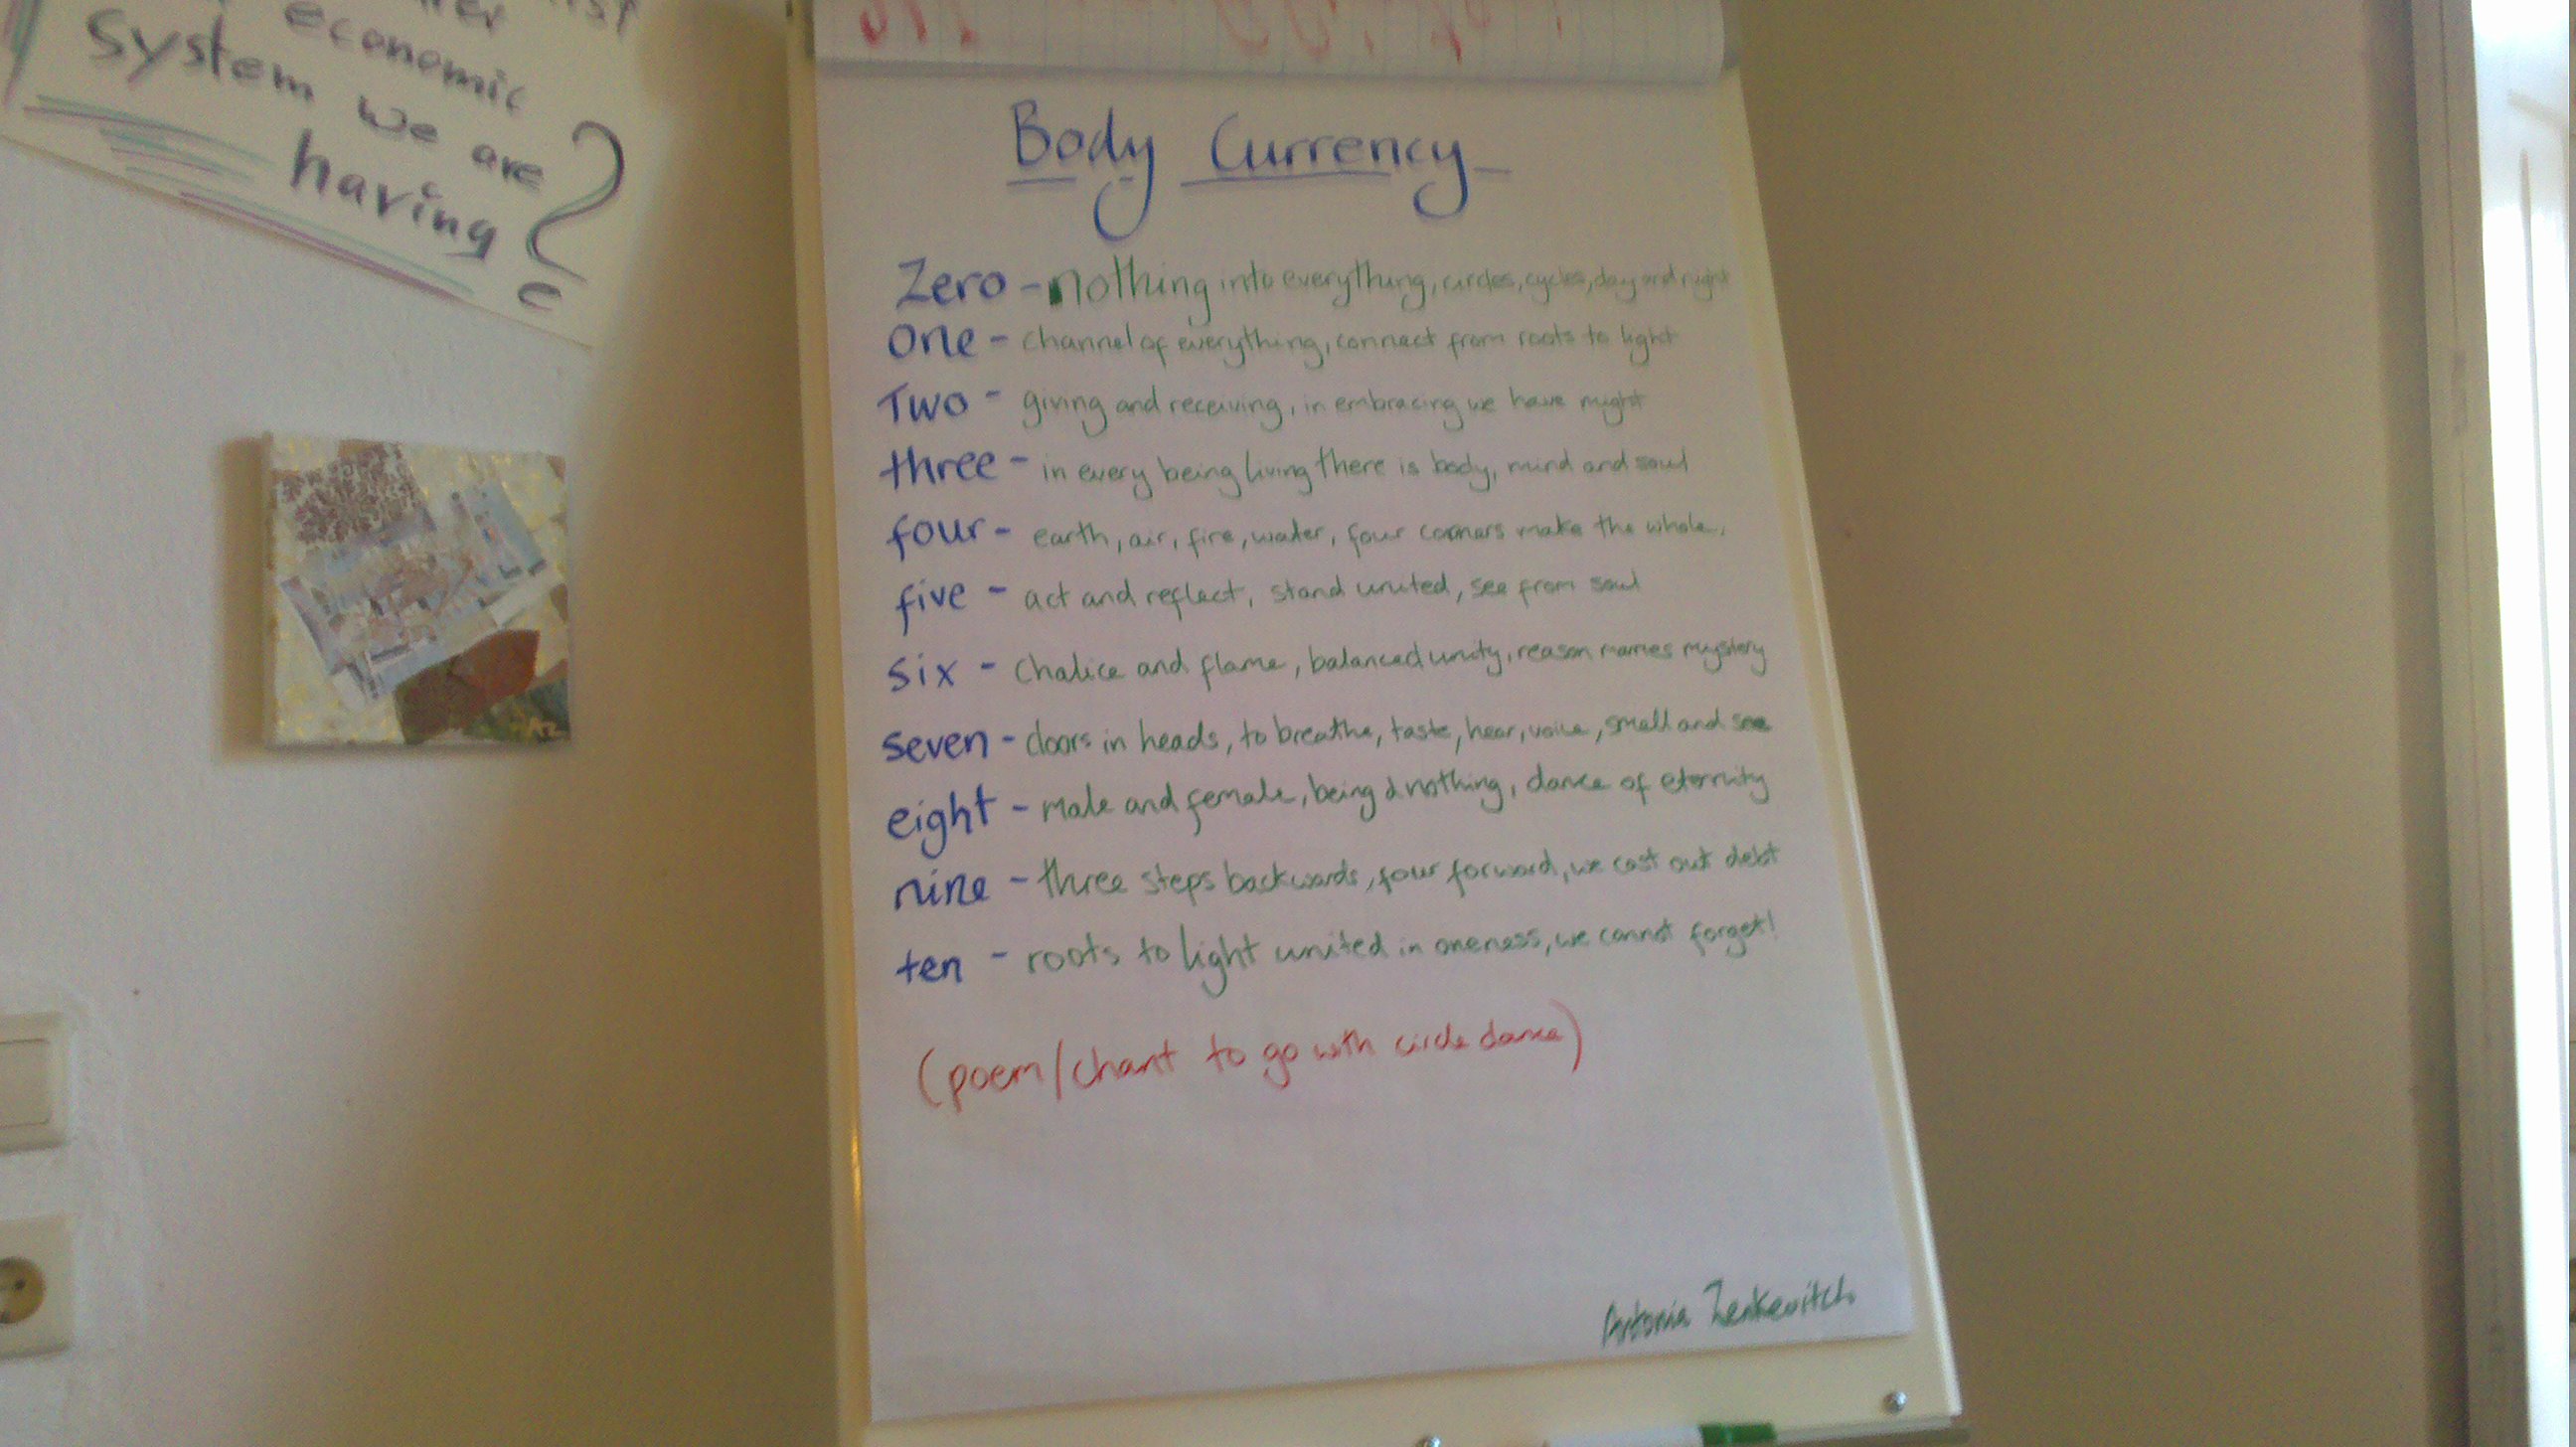 economic
System we are
having ?
Body Currency
Zero - nothing into everything, circles, cycles, day and night
One - channel of everything, connect from roots to light
Two - giving and receiving, in embracing we have might
three - in every being living there is body, mind and soul
four - earth, air, fire, water, four corners make the whole.
five - act and reflect, stand united, see from soul
six - Chalice and flame, balanced unity, reason names mystery
seven - doors in heads, to breathe, taste, hear, voice, smell and see
eight - Male and female, being & nothing, dance of eternity
nine - three steps backwards, four forward, we cast out debt
ten - roots to light united in oneness, we cannot forget!
(poem/chant to go with circle dance)
Antonia Zenkevitch